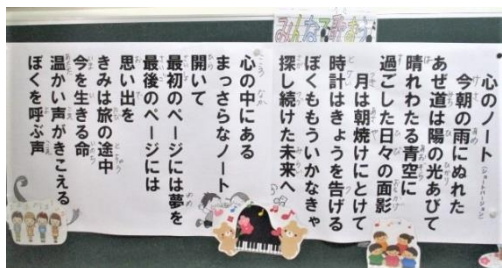 みんなで歌おう
心のノート (ショートバージョン)
今朝の雨にぬれた
あぜ道は陽の光あびて
晴れわたる青空に
過ごした日々の面影
月は朝焼けにとけて
時計はきょうを告げる
ぼくももういかなきゃ
探し続けた未来へ
心の中にある
まっさらなノート
開いて
最初のページには夢を
最後のページには
思い出を
きみは旅の途中
今を生きる命
温かい声がきこえる
ぼくを呼ぶ声